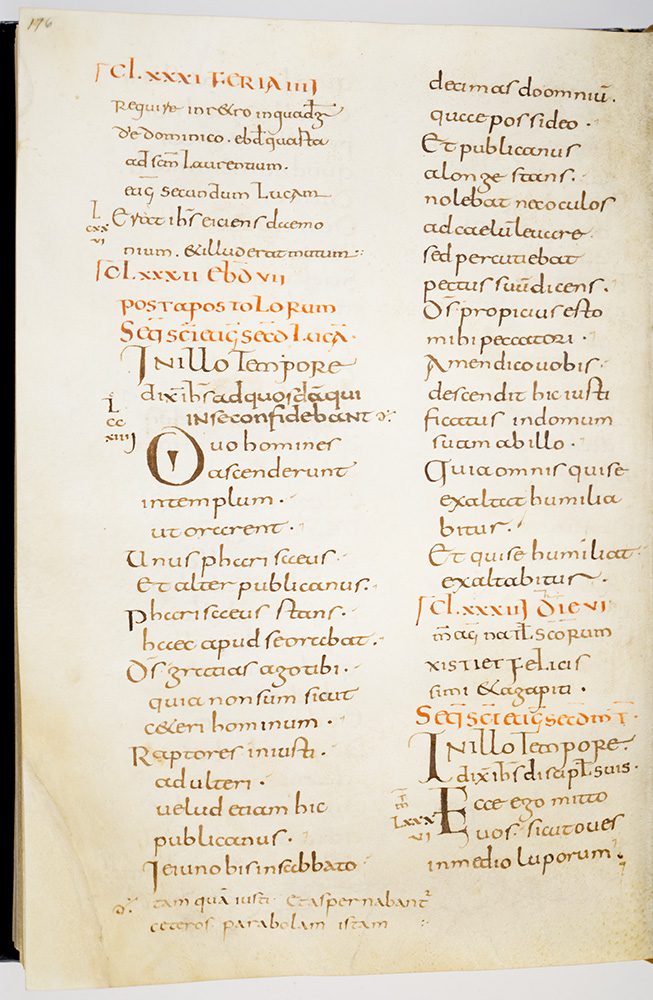 176
CL.XXXI FERIA IIII
Require in retro in quadꝶ
de dominico. ebd quarta
ad scm Laurentium.
euḡ secundum Lucam
L CXXVI
Erat ihs eiciens daemo
nium. & illud erat mutum
CL.XXXII EbD VII
POST APOSTOLORUM
Seq̄ sc̄i euḡ secd Lucā.
IN illo Tempore
dix̄ ihs ad quosdā qui
in se confidebant
L CC XIIII
Duo homines
ascenderunt
in templum.
ut orarent.
Unus pharisaeus.
Et alter publicanus.
Pharisaeus stans.
haec apud se orabat.
Ds̄ gratias ago tibi.
quia non sum sicut
c&eri hominum.
Raptores iniusti.
adulteri.
uelud etiam hic
publicanus.
Ieiuno bis in sabbato
tam quā iusti. Et aspernabant̄
ceteros parabolam istam
decimas do omniū.
quae possideo.
Et publicanus
a longe stans.
nolebat nec oculos
ad caelū leuare.
sed percutiebat
pectus suū dicens.
Ds̄ propicius esto
mihi peccatori.
Amen dico uobis.
descendit hic iusti
ficatus in domum
suam ab illo.
Quia omnis qui se
exaltat humilia
bitur.
Et qui se humiliat.
exaltabitur.
CL.XXXIII DIE VI
m̄ aḡ natł. scorum
xisti et Felicis
simi & agapiti.
Seq̄ sc̄i euḡ secd m̄ T̄.
IN illo Tempore.
dix̄ ihs discipł. suis.
m̄ LXXXVI
Ecce ego mitto
uos. sicut oues
in medio luporum